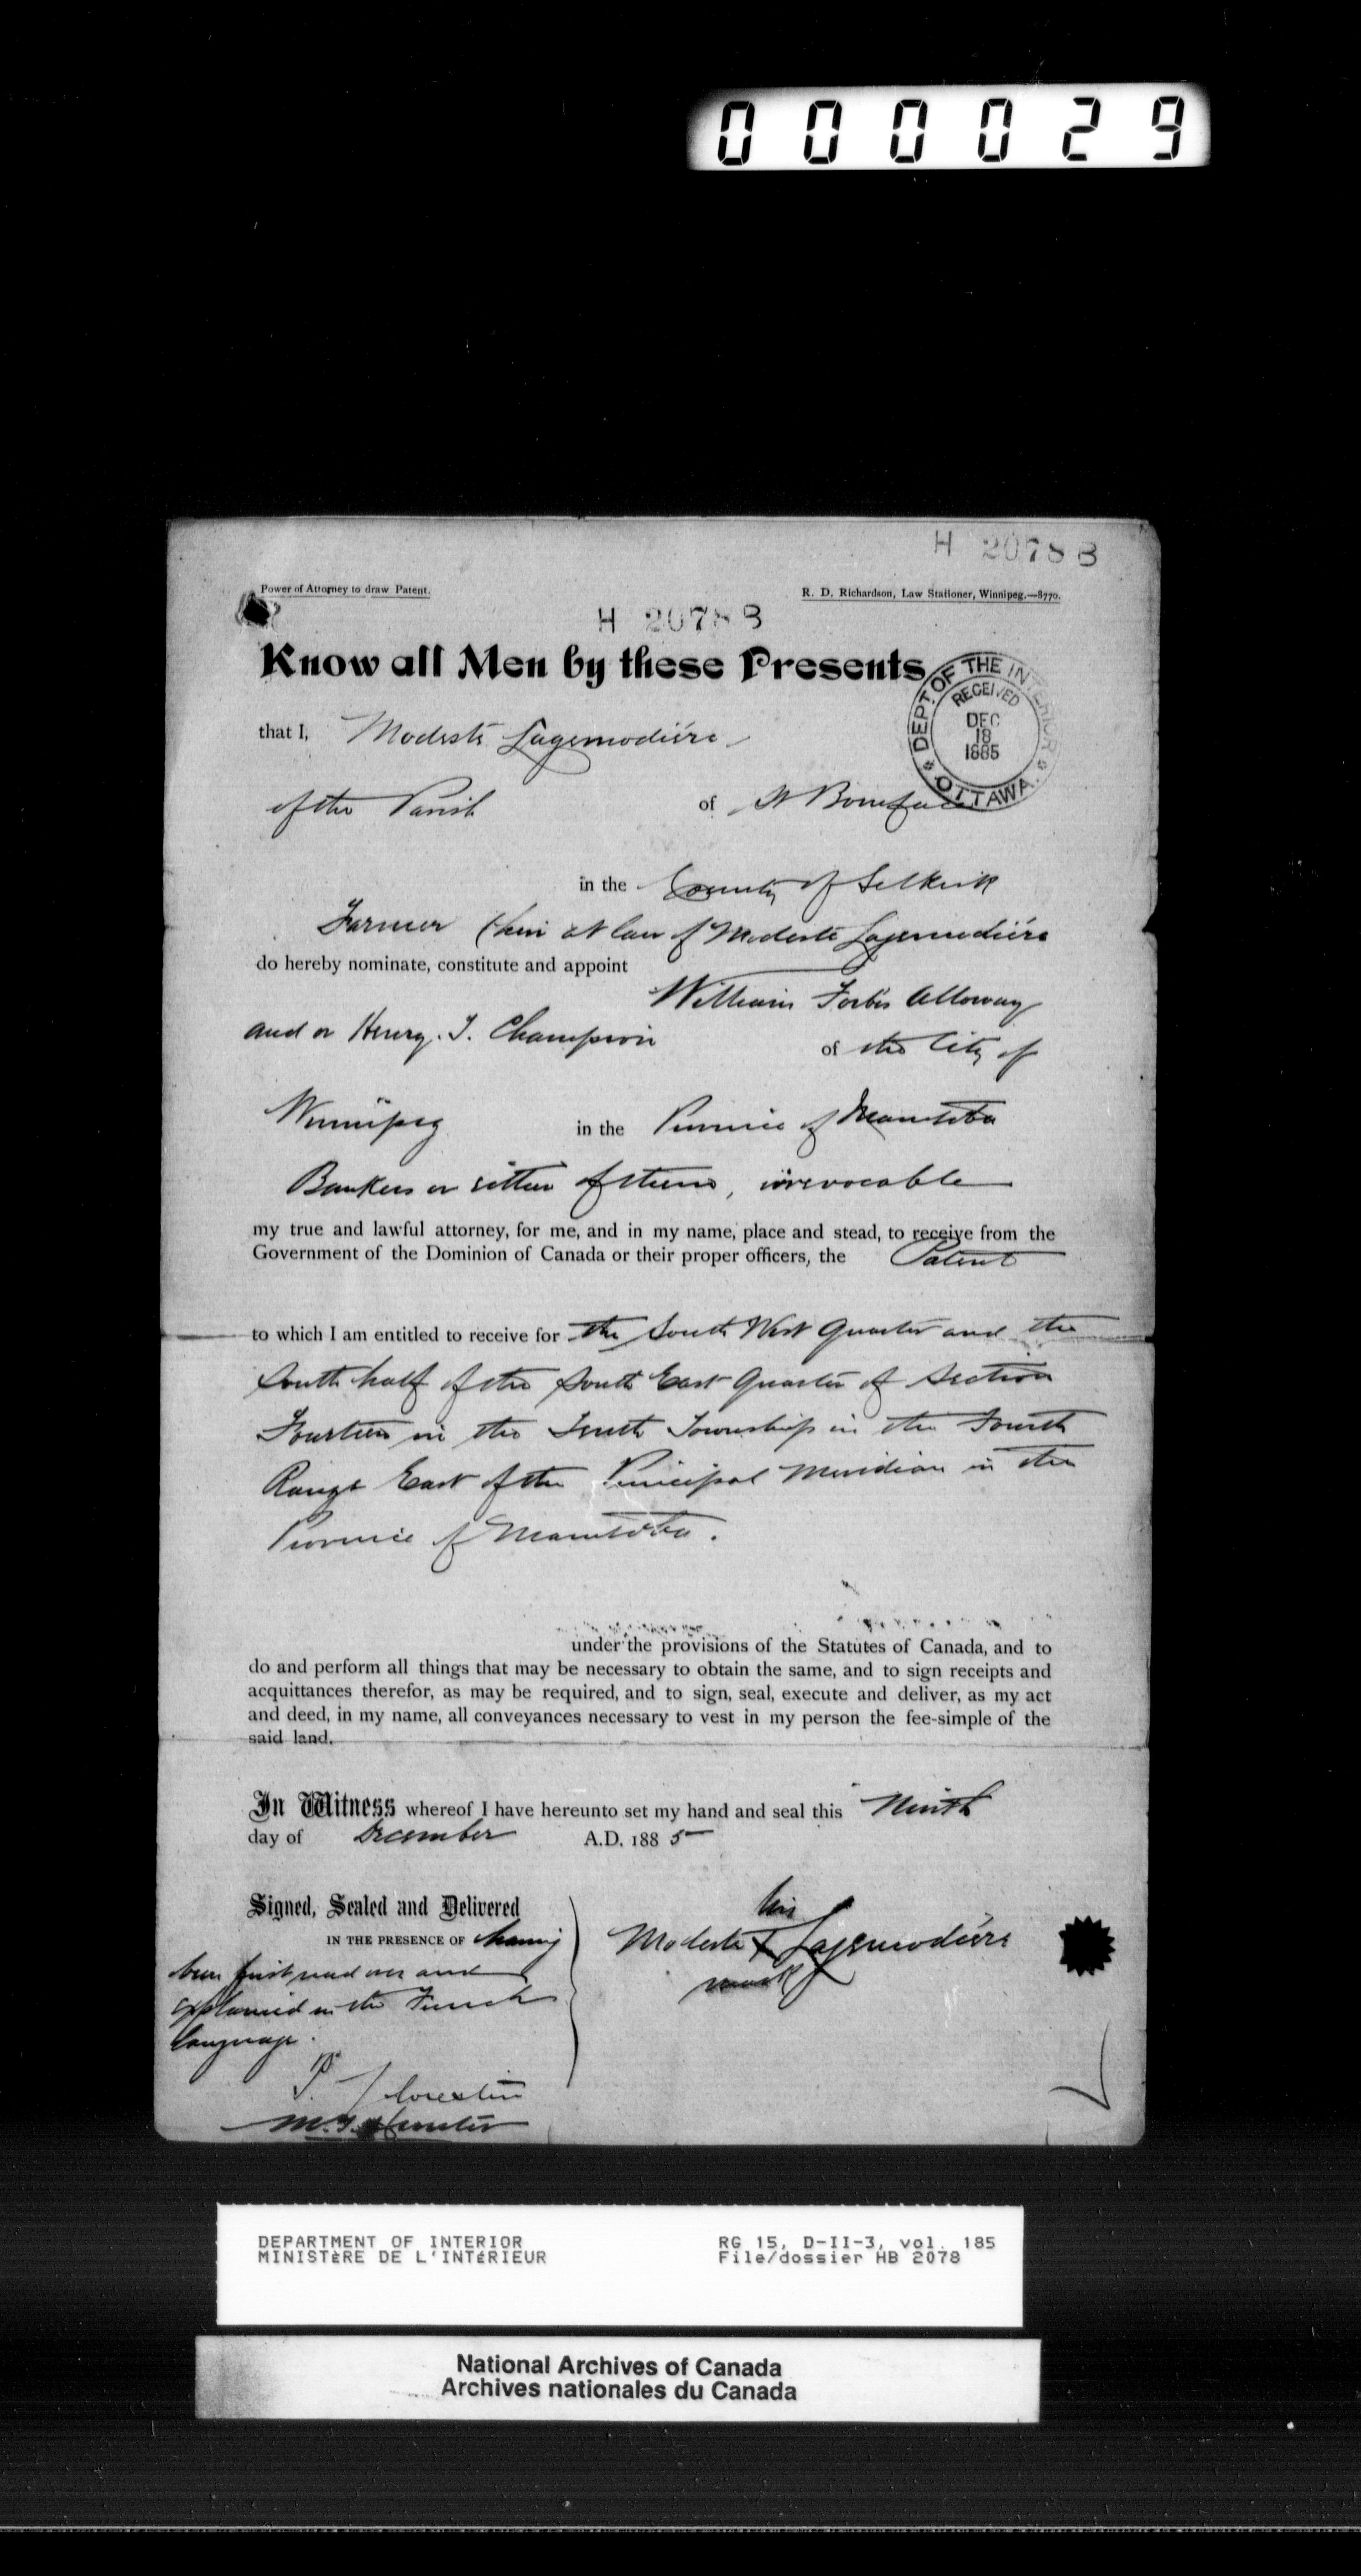 000029
H 2078 B
Power of Attorney to draw Patent.
R. D. Richardson, Law Stationer, Winnipeg.—8770.
H 2078 B
Know all Men by these Presents
DEPT. OF THE INTERIOR
RECEIVED
DEC
18
1885
* OTTAWA. *
that I, Modeste Lagemodière
of the Parish of St Boniface
in the County of Selkirk
Farmer (heir at law of Modeste Lagemodière
do hereby nominate, constitute and appoint
William Forbes Alloway
and or Henry. T. Champion of the City of
Winnipeg in the Province of Manitoba
Bankers or either of them, irrevocable
my true and lawful attorney, for me, and in my name, place and stead, to receive from the
Government of the Dominion of Canada or their proper officers, the Patent
to which I am entitled to receive for the South West Quarter and the
South half of the South East Quarter of Section
Fourteen in the Tenth Township in the Fourth
Range East of the Principal Meridian in the
Province of Manitoba.
under the provisions of the Statutes of Canada, and to
do and perform all things that may be necessary to obtain the same, and to sign receipts and
acquittances therefor, as may be required, and to sign, seal, execute and deliver, as my act
and deed, in my name, all conveyances necessary to vest in my person the fee-simple of the
said land.
In Witness whereof I have hereunto set my hand and seal this Ninth
day of December A.D. 1885
Signed, Sealed and Delivered
IN THE PRESENCE OF having
been first read over and
explained in the French
language.
his
Modeste X Lagemodière
mark
DEPARTMENT OF INTERIOR
MINISTÈRE DE L'INTÉRIEUR
RG 15, D-II-3, vol. 185
File/dossier HB 2078
National Archives of Canada
Archives nationales du Canada